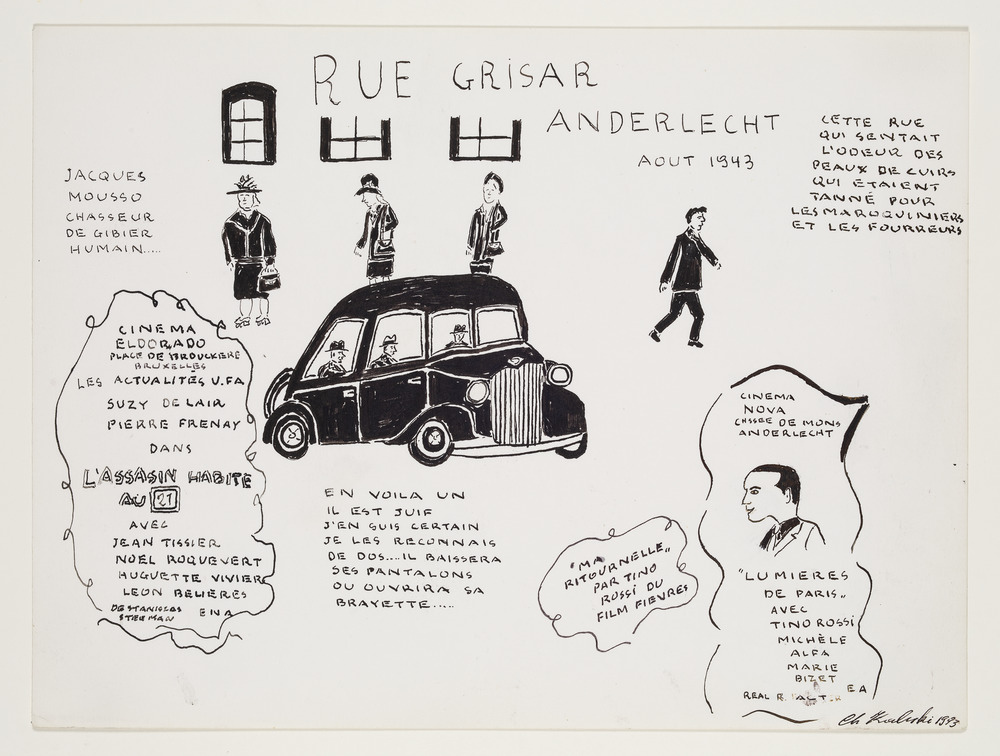 RUE GRISAR
ANDERLECHT
AOUT 1943
CETTE RUE
QUI SENTAIT
L'ODEUR DES
PEAUX DE CUIRS
QUI ÉTAIENT
TANNÉ POUR
LES MAROQUINIERS
ET LES FOURREURS
JACQUES
MOUSSO
CHASSEUR
DE GIBIER
HUMAIN.....
CINEMA
ELDORADO
PLACE DE BROUCKERE
BRUXELLES
LES ACTUALITÉS U.FA
SUZY DELAIR
PIERRE FRENAY
DANS
L'ASSASIN HABITE
AU 21
AVEC
JEAN TISSIER
NOEL ROQUEVERT
HUGUETTE VIVIER
LEON BELIÈRES
DE STANISLAS
STEEMAN
ENA
EN VOILA UN
IL EST JUIF
J'EN SUIS CERTAIN
JE LES RECONNAIS
DE DOS....IL BAISSERA
SES PANTALONS
OU OUVRIRA SA
BRAYETTE.....
"MA
RITOURNELLE"
PAR TINO
ROSSI DU
FILM FIEVRES
CINEMA
NOVA
CHSSEE DE MONS
ANDERLECHT
"LUMIERES
DE PARIS"
AVEC
TINO ROSSI
MICHÈLE
ALFA
MARIE
BIZET
EA
REAL R.
Ch Kaliski 1993